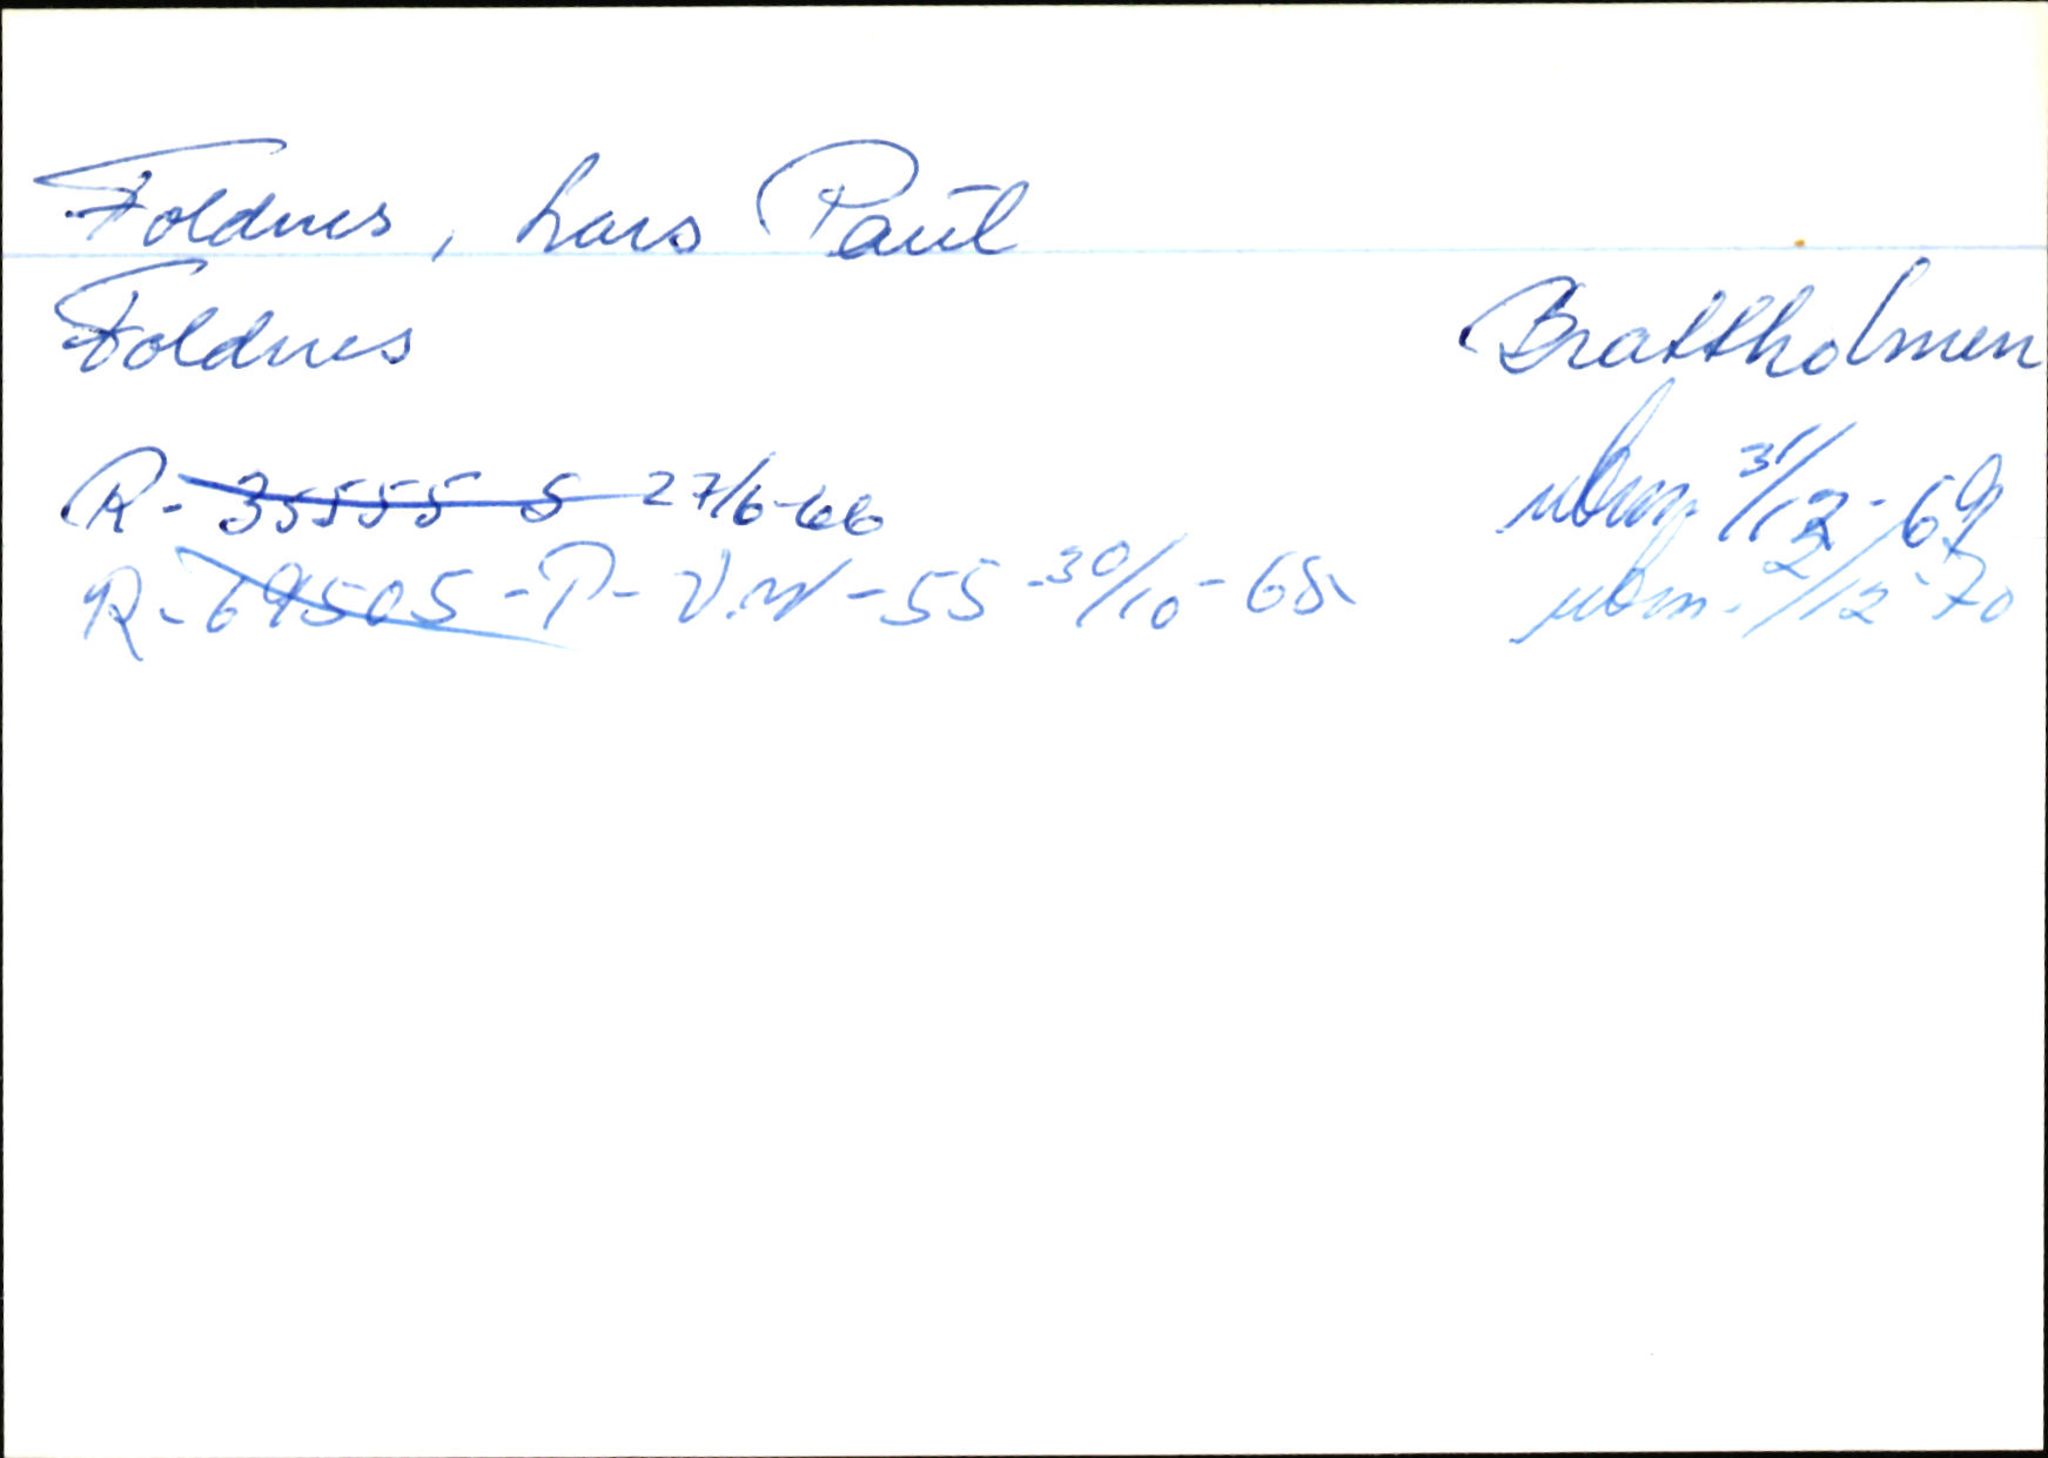 Foldnes, Lars Paul
Foldnes Brattholmen
R- 35555 S 27/6-66 ubm. 31/12-69
R- 69505 -P- V.W -55 -30/10-68 ubm. 2/12-70